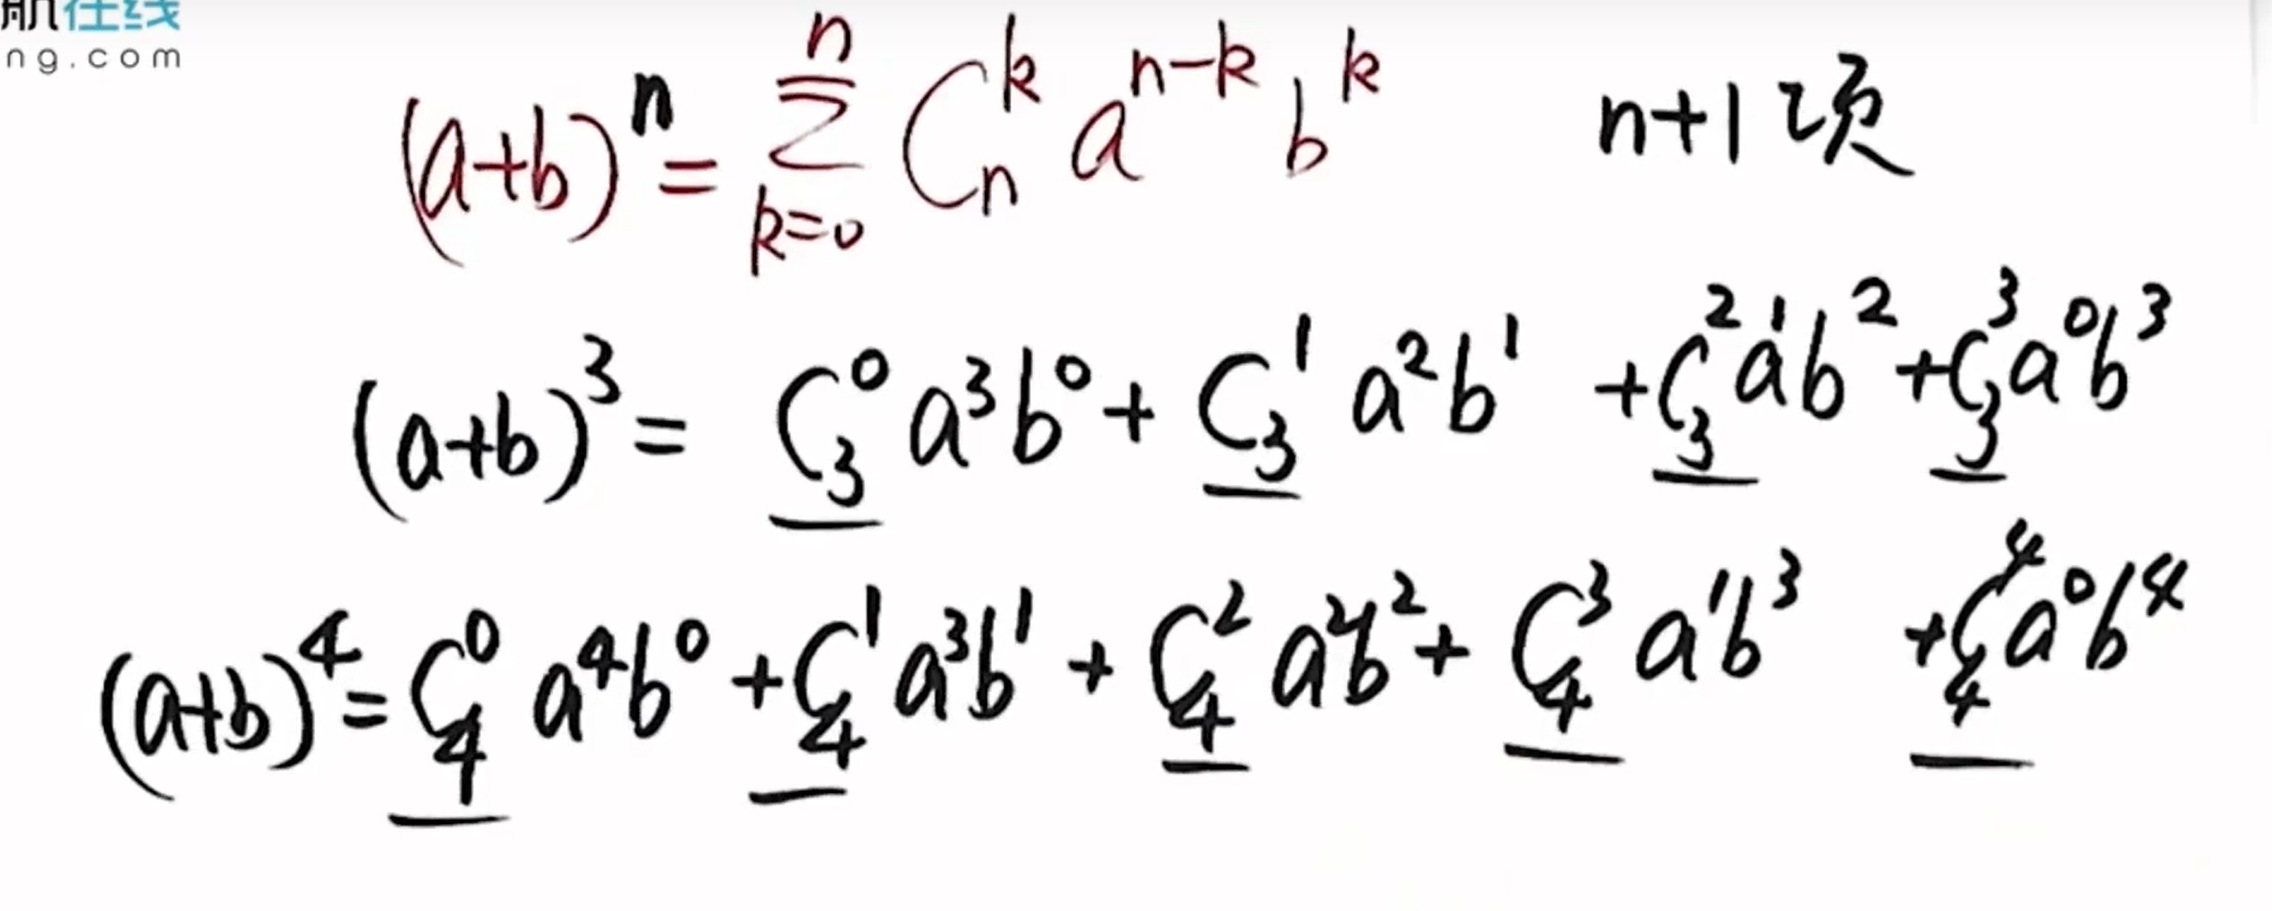 在线
ng.com
(a+b)^n = \sum_{k=0}^{n} C_n^k a^{n-k} b^k n+1项
(a+b)^3 = C_3^0 a^3 b^0 + C_3^1 a^2 b^1 + C_3^2 a^1 b^2 + C_3^3 a^0 b^3
(a+b)^4 = C_4^0 a^4 b^0 + C_4^1 a^3 b^1 + C_4^2 a^2 b^2 + C_4^3 a^1 b^3 + C_4^4 a^0 b^4